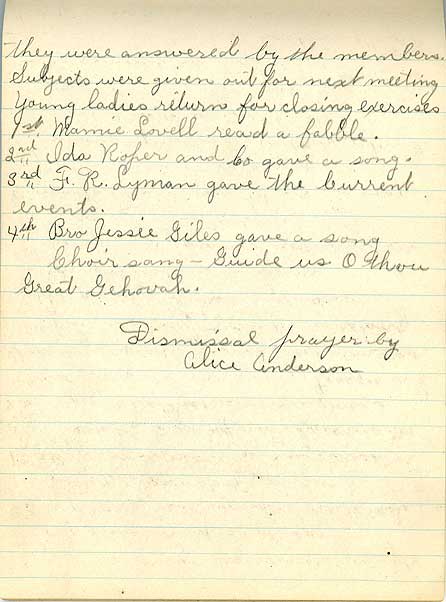 they were answered by the members.
Subjects were given out for next meeting
Young ladies return for closing exercises
1st Mamie Lovell read a fabble.
2nd Ida Roper and Co gave a song.
3rd F. R. Lyman gave the Current
events.
4th Bro Jessie Giles gave a song
Choir sang - Guide us O thou
Great Gehovah.
Dismissal prayer by
Alice Anderson